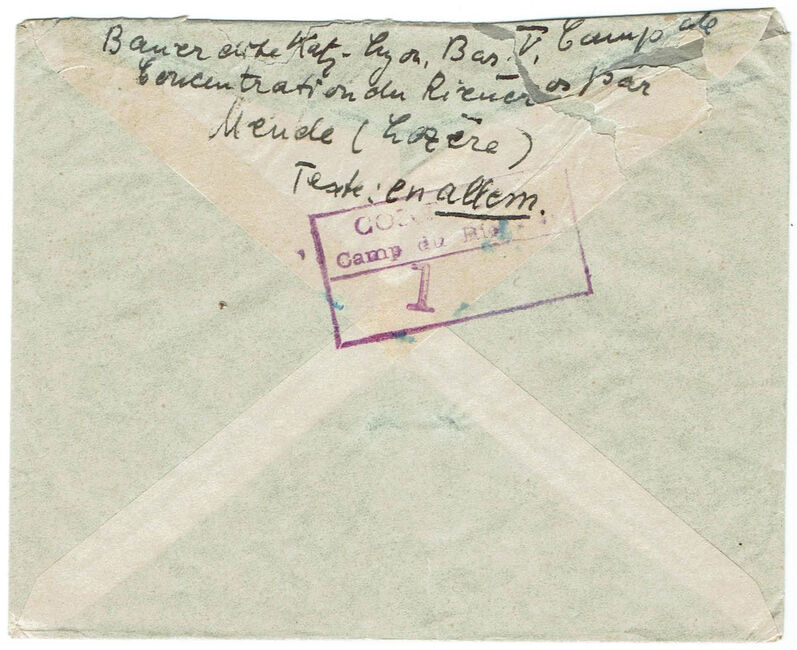 Bauer dite Katz-Lyon, Bar. V, Camp de
Concentration du Rieucros par
Mende (Lozère)
Texte: en allem.
CO
Camp du Rie
1